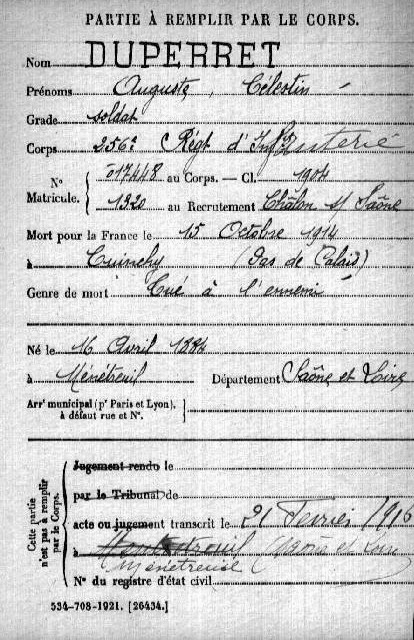 PARTIE À REMPLIR PAR LE CORPS.
Nom DUPERRET
Prénoms Auguste, Célestin
Grade soldat
Corps 256e Régt d'Infanterie
N° Matricule. 017448 au Corps. — Cl. 1904
1320 au Recrutement Châlon s/ Saône
Mort pour la France le 15 Octobre 1914
à Cuinchy (Pas de Calais)
Genre de mort Tué à l'ennemi
Né le 16 Avril 1884
à Ménétreuil Département Saône et Loire
Arrt municipal (pr Paris et Lyon),
à défaut rue et N°.
Cette partie n'est pas à remplir par le Corps.
Jugement rendu le
par le Tribunal de
acte ou jugement transcrit le 21 Février 1916
à Saône et Loire
Ménetreuil
N° du registre d'état civil
534-708-1921. [26434.]